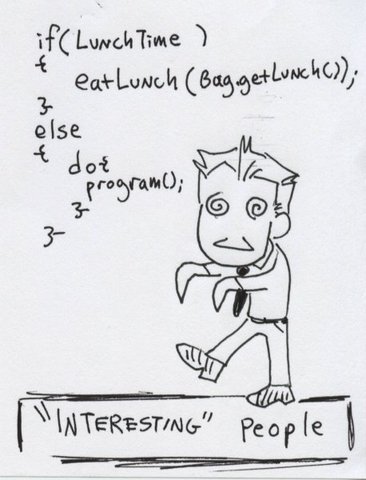 if(LunchTime )
{
eatLunch(Bag.getLunch());
}
else
{
do{
program();
}
}
"INTERESTING" People